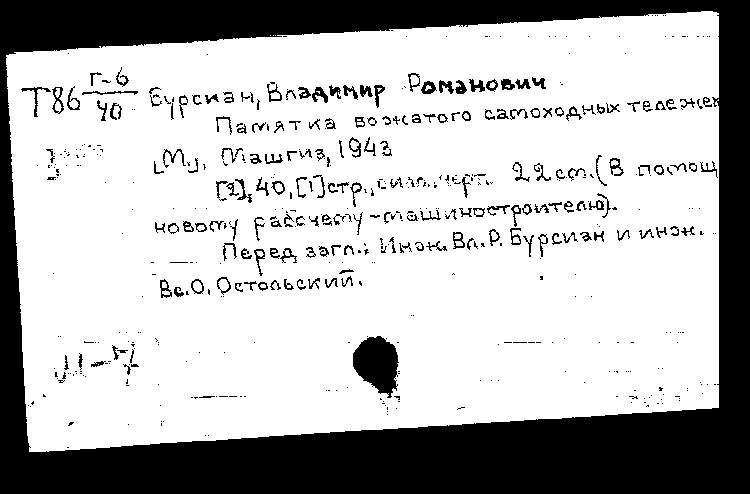 Т86 Г-6/40 Бурсиан, Владимир Романович
Памятка вожатого самоходных тележек
[М.], Машгиз, 1943
[2], 40, [1] стр., с илл., черт. 22 см. (В помощ
новому рабочему-машиностроителю).
Перед загл.: Инж. Вл. Р. Бурсиан и инж.
Вс. О. Остольский.
М-7